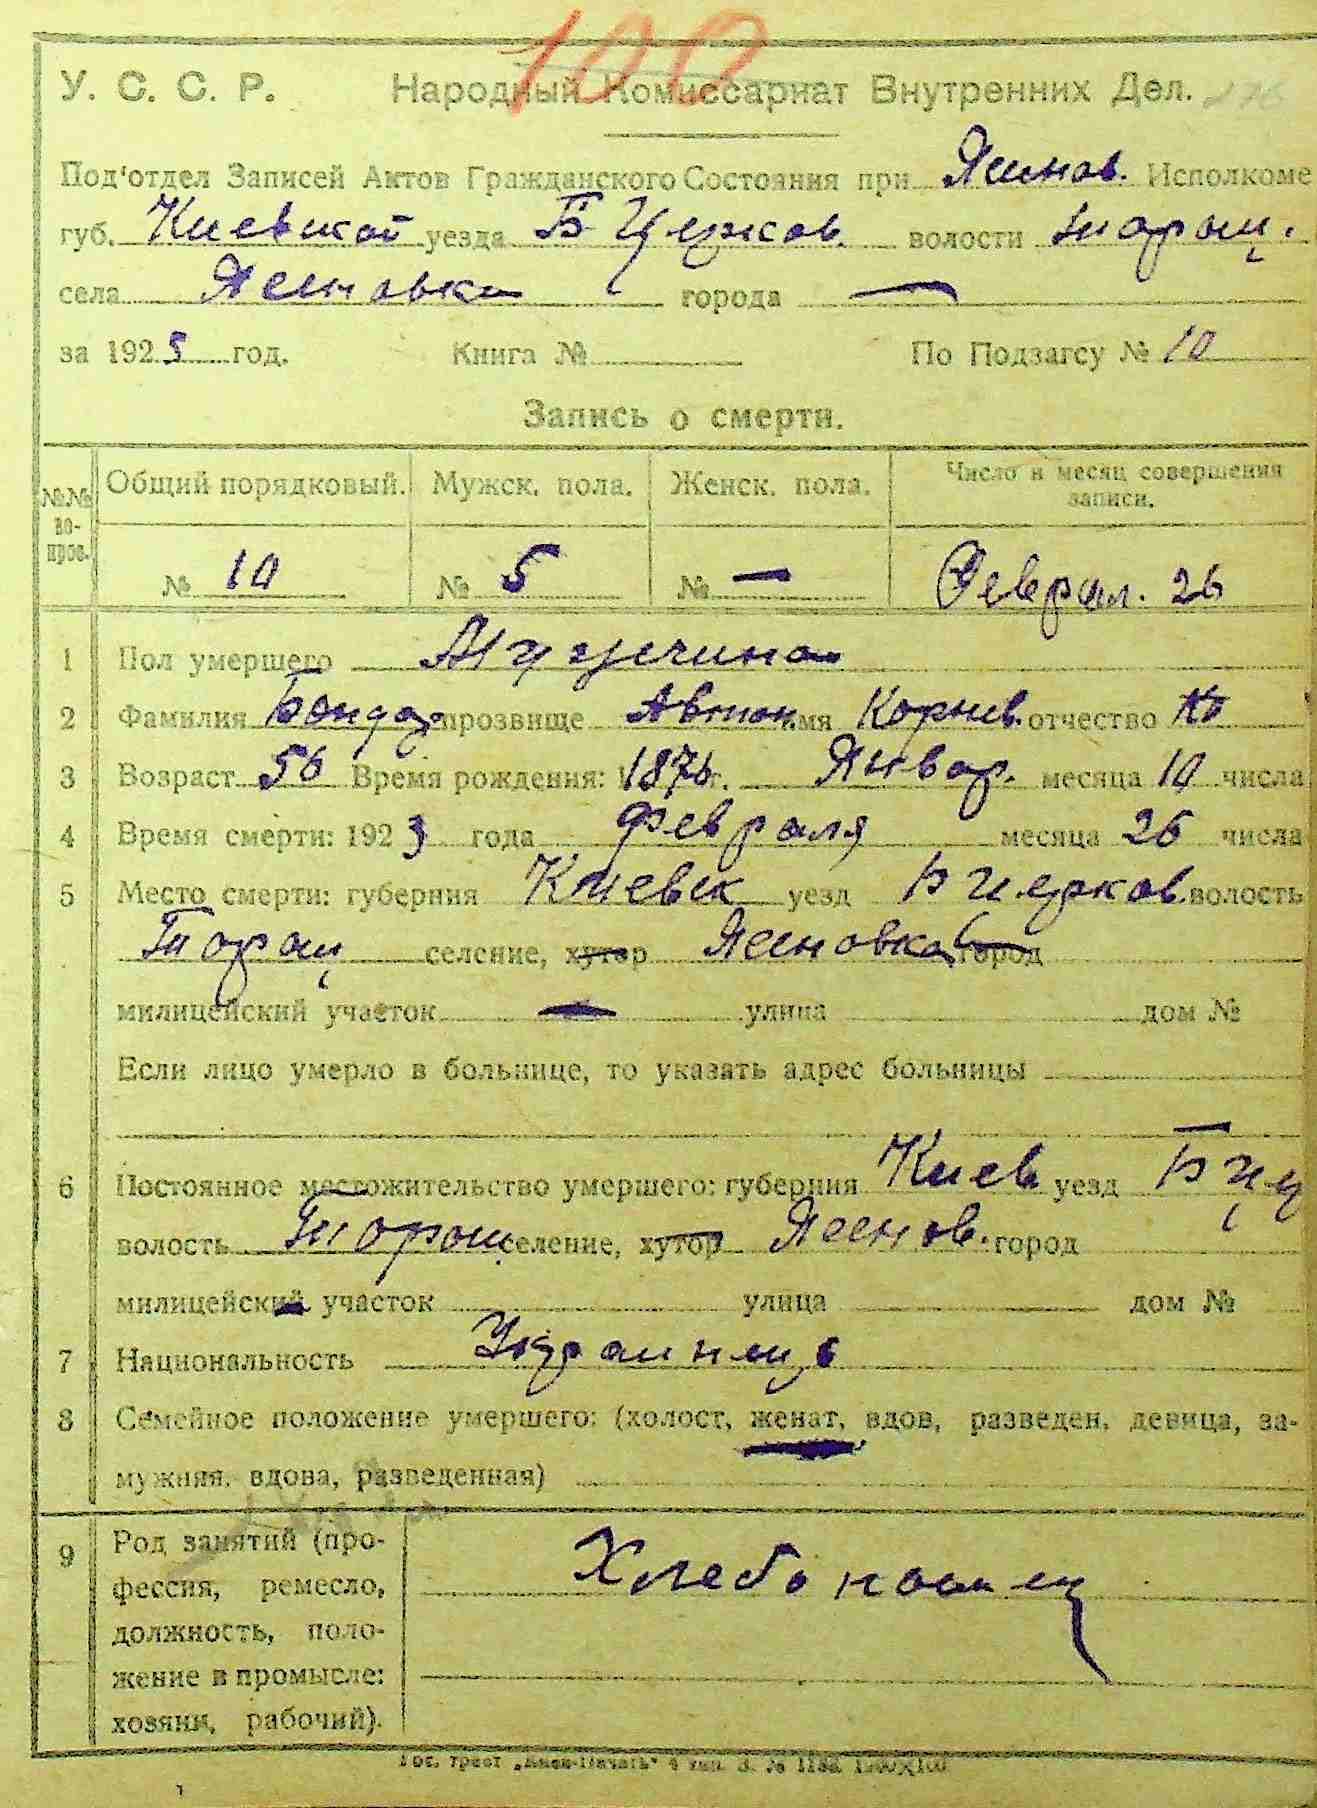 100
У. С. С. Р. Народный Комиссариат Внутренних Дел. 276
Под'отдел Записей Актов Гражданского Состояния при Яснов. Исполкоме
губ. Киевской уезда Б-Церков. волости Торащ.
села Ясновка города —
за 1923 год. Книга № По Подзагсу № 10
Запись о смерти.
№№ вопров. Общий порядковый. Мужск. пола. Женск. пола. Число и месяц совершения записи.
№ 10 № 5 № — Феврал. 26
1 Пол умершего Мужчина
2 Фамилия Бондар прозвище Автон. имя Корнев. отчество
3 Возраст 50 Время рождения: 1873 г. Январ. месяца 10 числа
4 Время смерти: 1923 года февраля месяца 26 числа
5 Место смерти: губерния Киевск уезд Б Церков. волость
Торащ селение, хутор Ясновка город
милицейский участок — улица дом №
Если лицо умерло в больнице, то указать адрес больницы
6 Постоянное местожительство умершего: губерния Киев уезд Б Це
волость Торащ селение, хутор Яснов. город
милицейский участок улица дом №
7 Национальность Украинец
8 Семейное положение умершего: (холост, женат, вдов, разведен, девица, за-
мужняя, вдова, разведенная)
9 Род занятий (про-
фессия, ремесло,
должность, поло-
жение в промысле:
хозяин, рабочий).
Хлебопашец
Гос. трест „Киев-Печать" 4 тип. З. № 1182